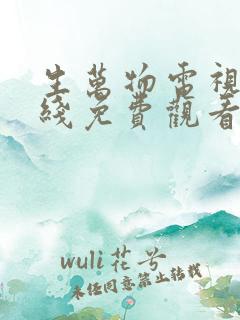 生萬物電視
綫免費觀看
wuli花兮
未经同意禁止转载